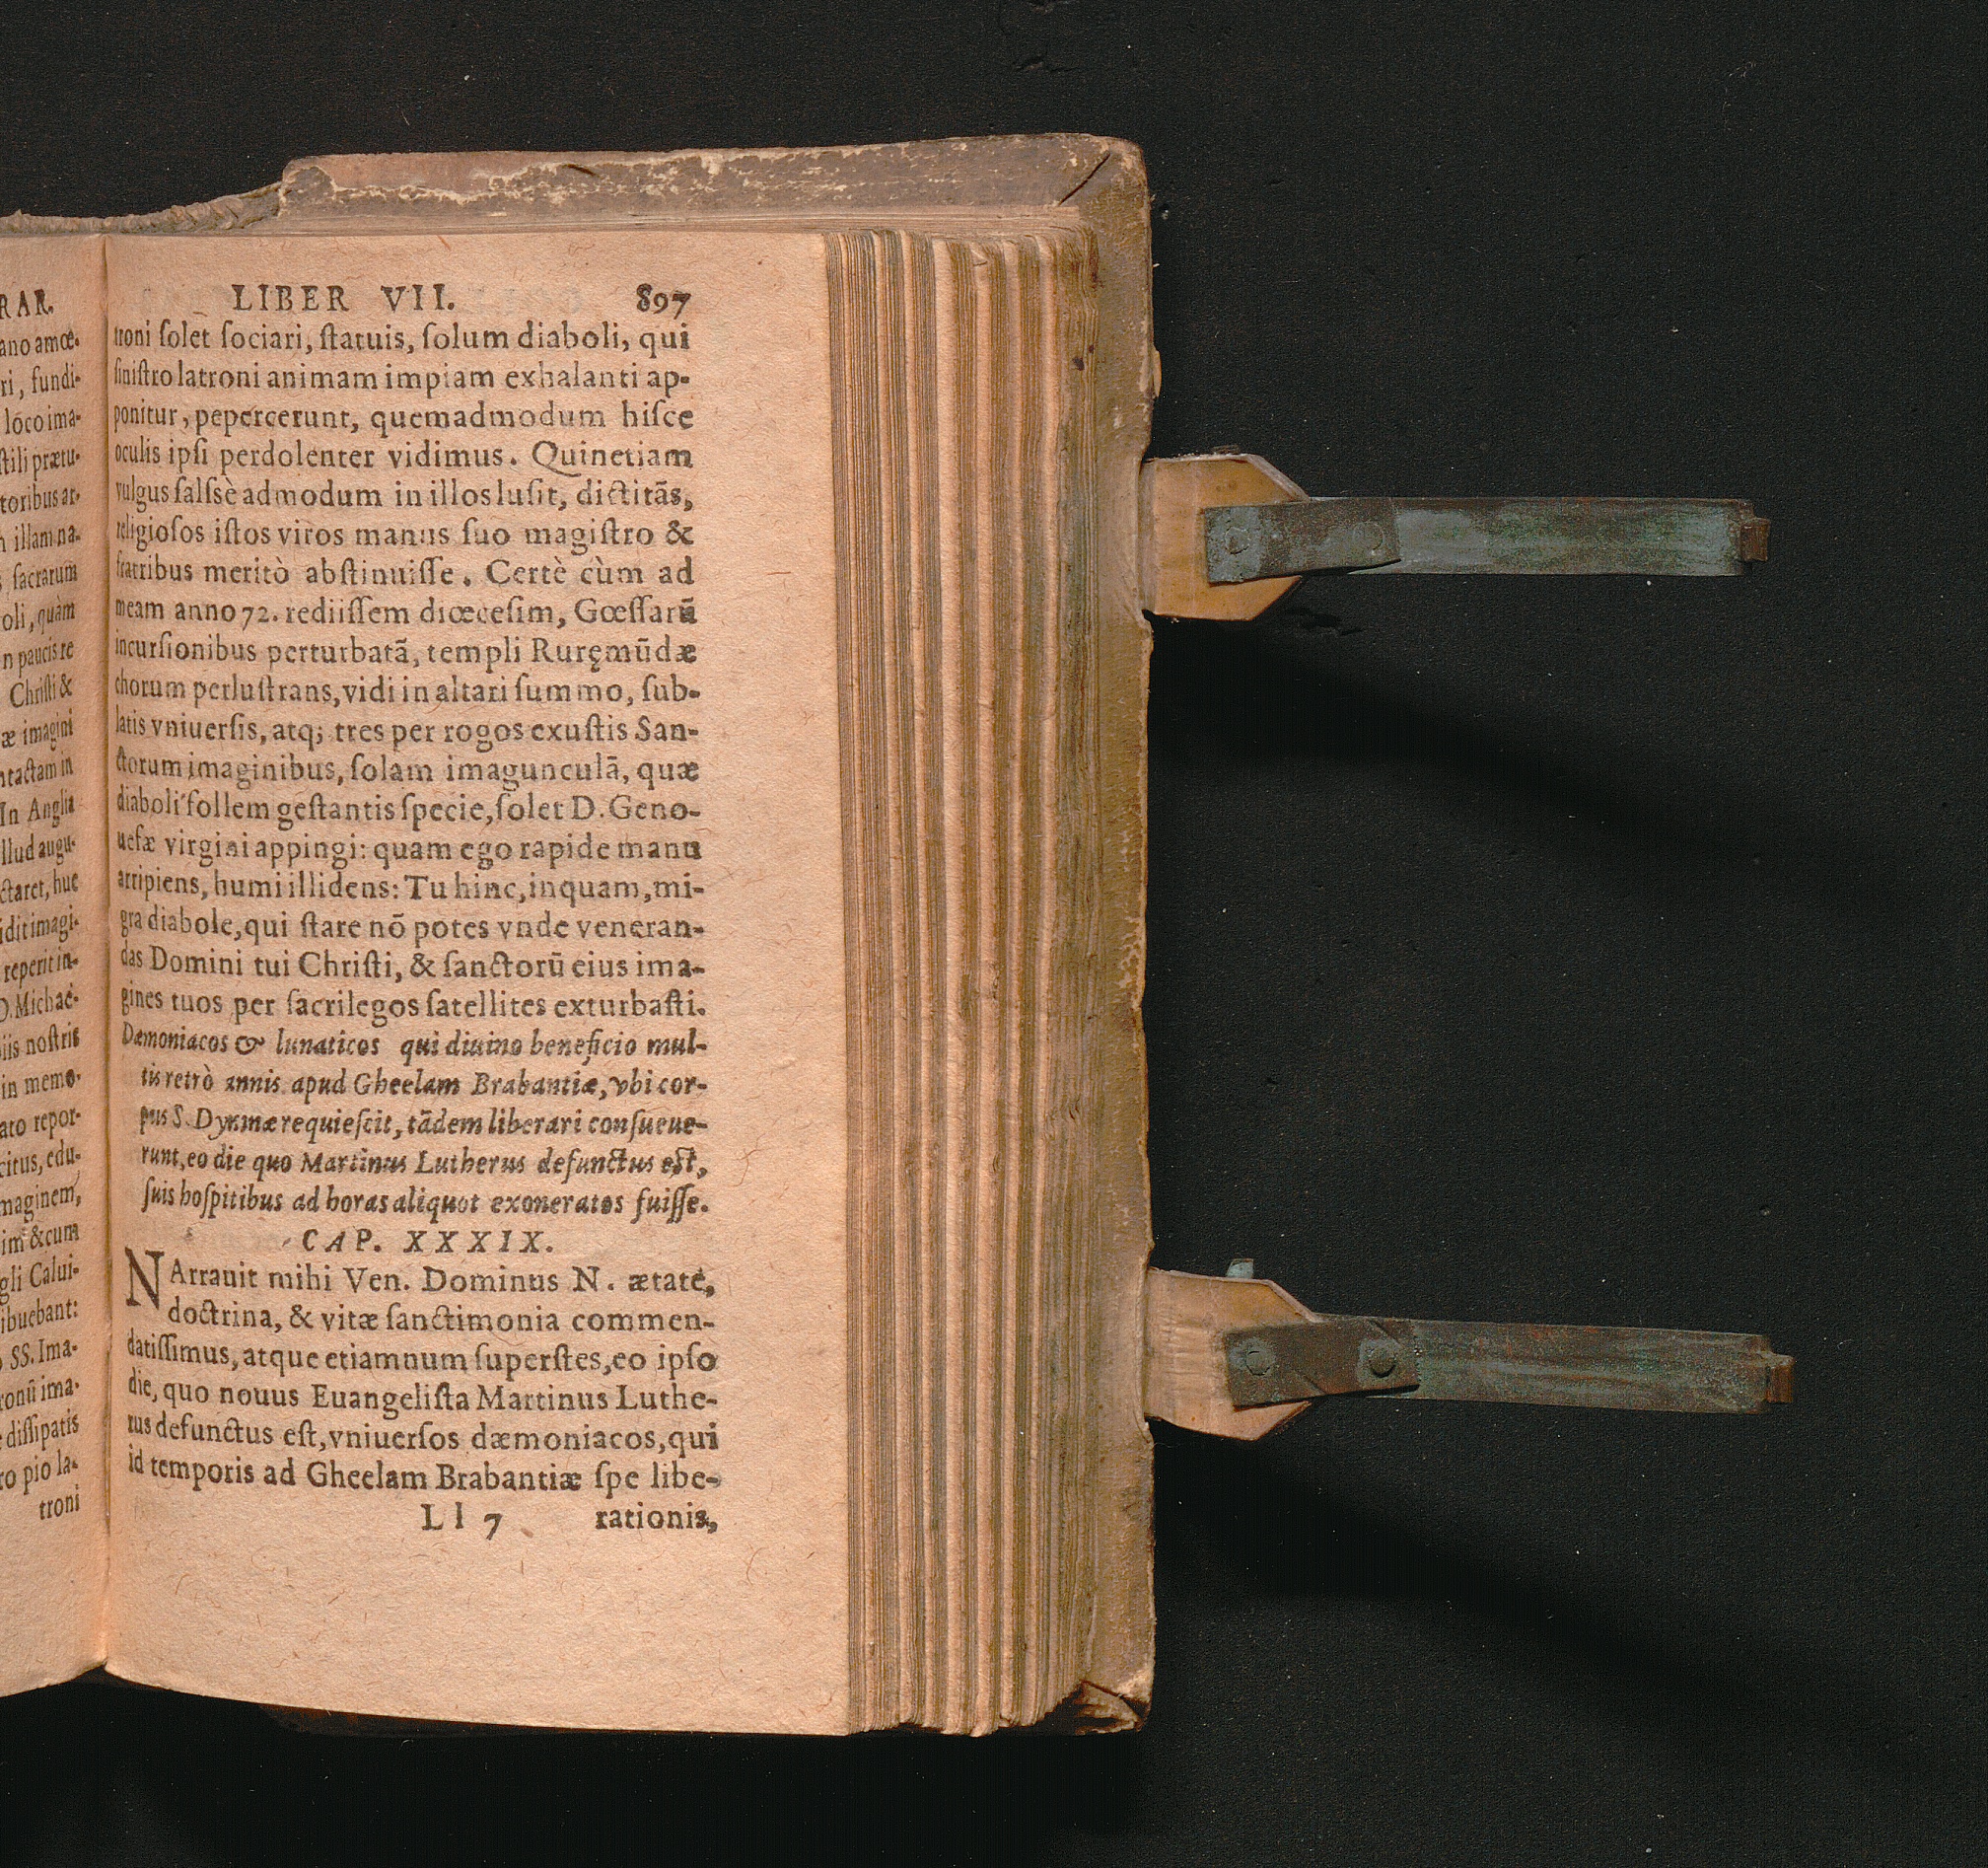 RAR.
ano amœ-
ri, fundi-
loco ima-
stili prætu-
toribus ar-
illam na-
sacrarum
oli, quàm
n paucis re
Christi &
æ imagini
ntactam in
In Anglia
llud augu-
ctaret, huc
idit imagi-
reperit in-
D. Michaë-
iis nostris
in memo-
ato repor-
citus, edu-
maginem,
im & cum
gli Calui-
ibuebant:
SS. Ima-
ronū ima-
dissipatis
ro pio la-
troni
LIBER VII. 897
troni ſolet ſociari, ſtatuis, ſolum diaboli, qui
ſiniſtro latroni animam impiam exhalanti ap-
ponitur, pepercerunt, quemadmodum hiſce
oculis ipſi perdolenter vidimus. Quinetiam
vulgus falſsè admodum in illos luſit, dictitãs,
religioſos iſtos viros manus ſuo magiſtro &
fratribus meritò abſtinuiſſe. Certè cùm ad
meam anno 72. rediiſſem diœceſim, Gœſſarū
incurſionibus perturbatã, templi Ruręmūdæ
chorum perluſtrans, vidi in altari ſummo, ſub-
latis vniuerſis, atq; tres per rogos exuſtis San-
ctorum imaginibus, ſolam imagunculã, quæ
diaboli follem geſtantis ſpecie, ſolet D. Geno-
uefæ virgini appingi: quam ego rapide manu
arripiens, humi illidens: Tu hinc, inquam, mi-
gra diabole, qui ſtare nõ potes vnde veneran-
das Domini tui Chriſti, & ſanctorū eius ima-
gines tuos per ſacrilegos ſatellites exturbaſti.
Dæmoniacos & lunaticos qui diuino beneficio mul-
tis retrò annis apud Gheelam Brabantiæ, vbi cor-
pus S. Dyṁnæ requieſcit, tãdem liberari conſueue-
runt, eo die quo Martinus Lutherus defunctus eſt,
ſuis hoſpitibus ad horas aliquot exoneratos fuiſſe.
CAP. XXXIX.
NArrauit mihi Ven. Dominus N. ætate,
doctrina, & vitæ ſanctimonia commen-
datiſſimus, atque etiamnum ſuperſtes, eo ipſo
die, quo nouus Euangeliſta Martinus Luthe-
rus defunctus eſt, vniuerſos dæmoniacos, qui
id temporis ad Gheelam Brabantiæ ſpe libe-
Ll 7 rationis,